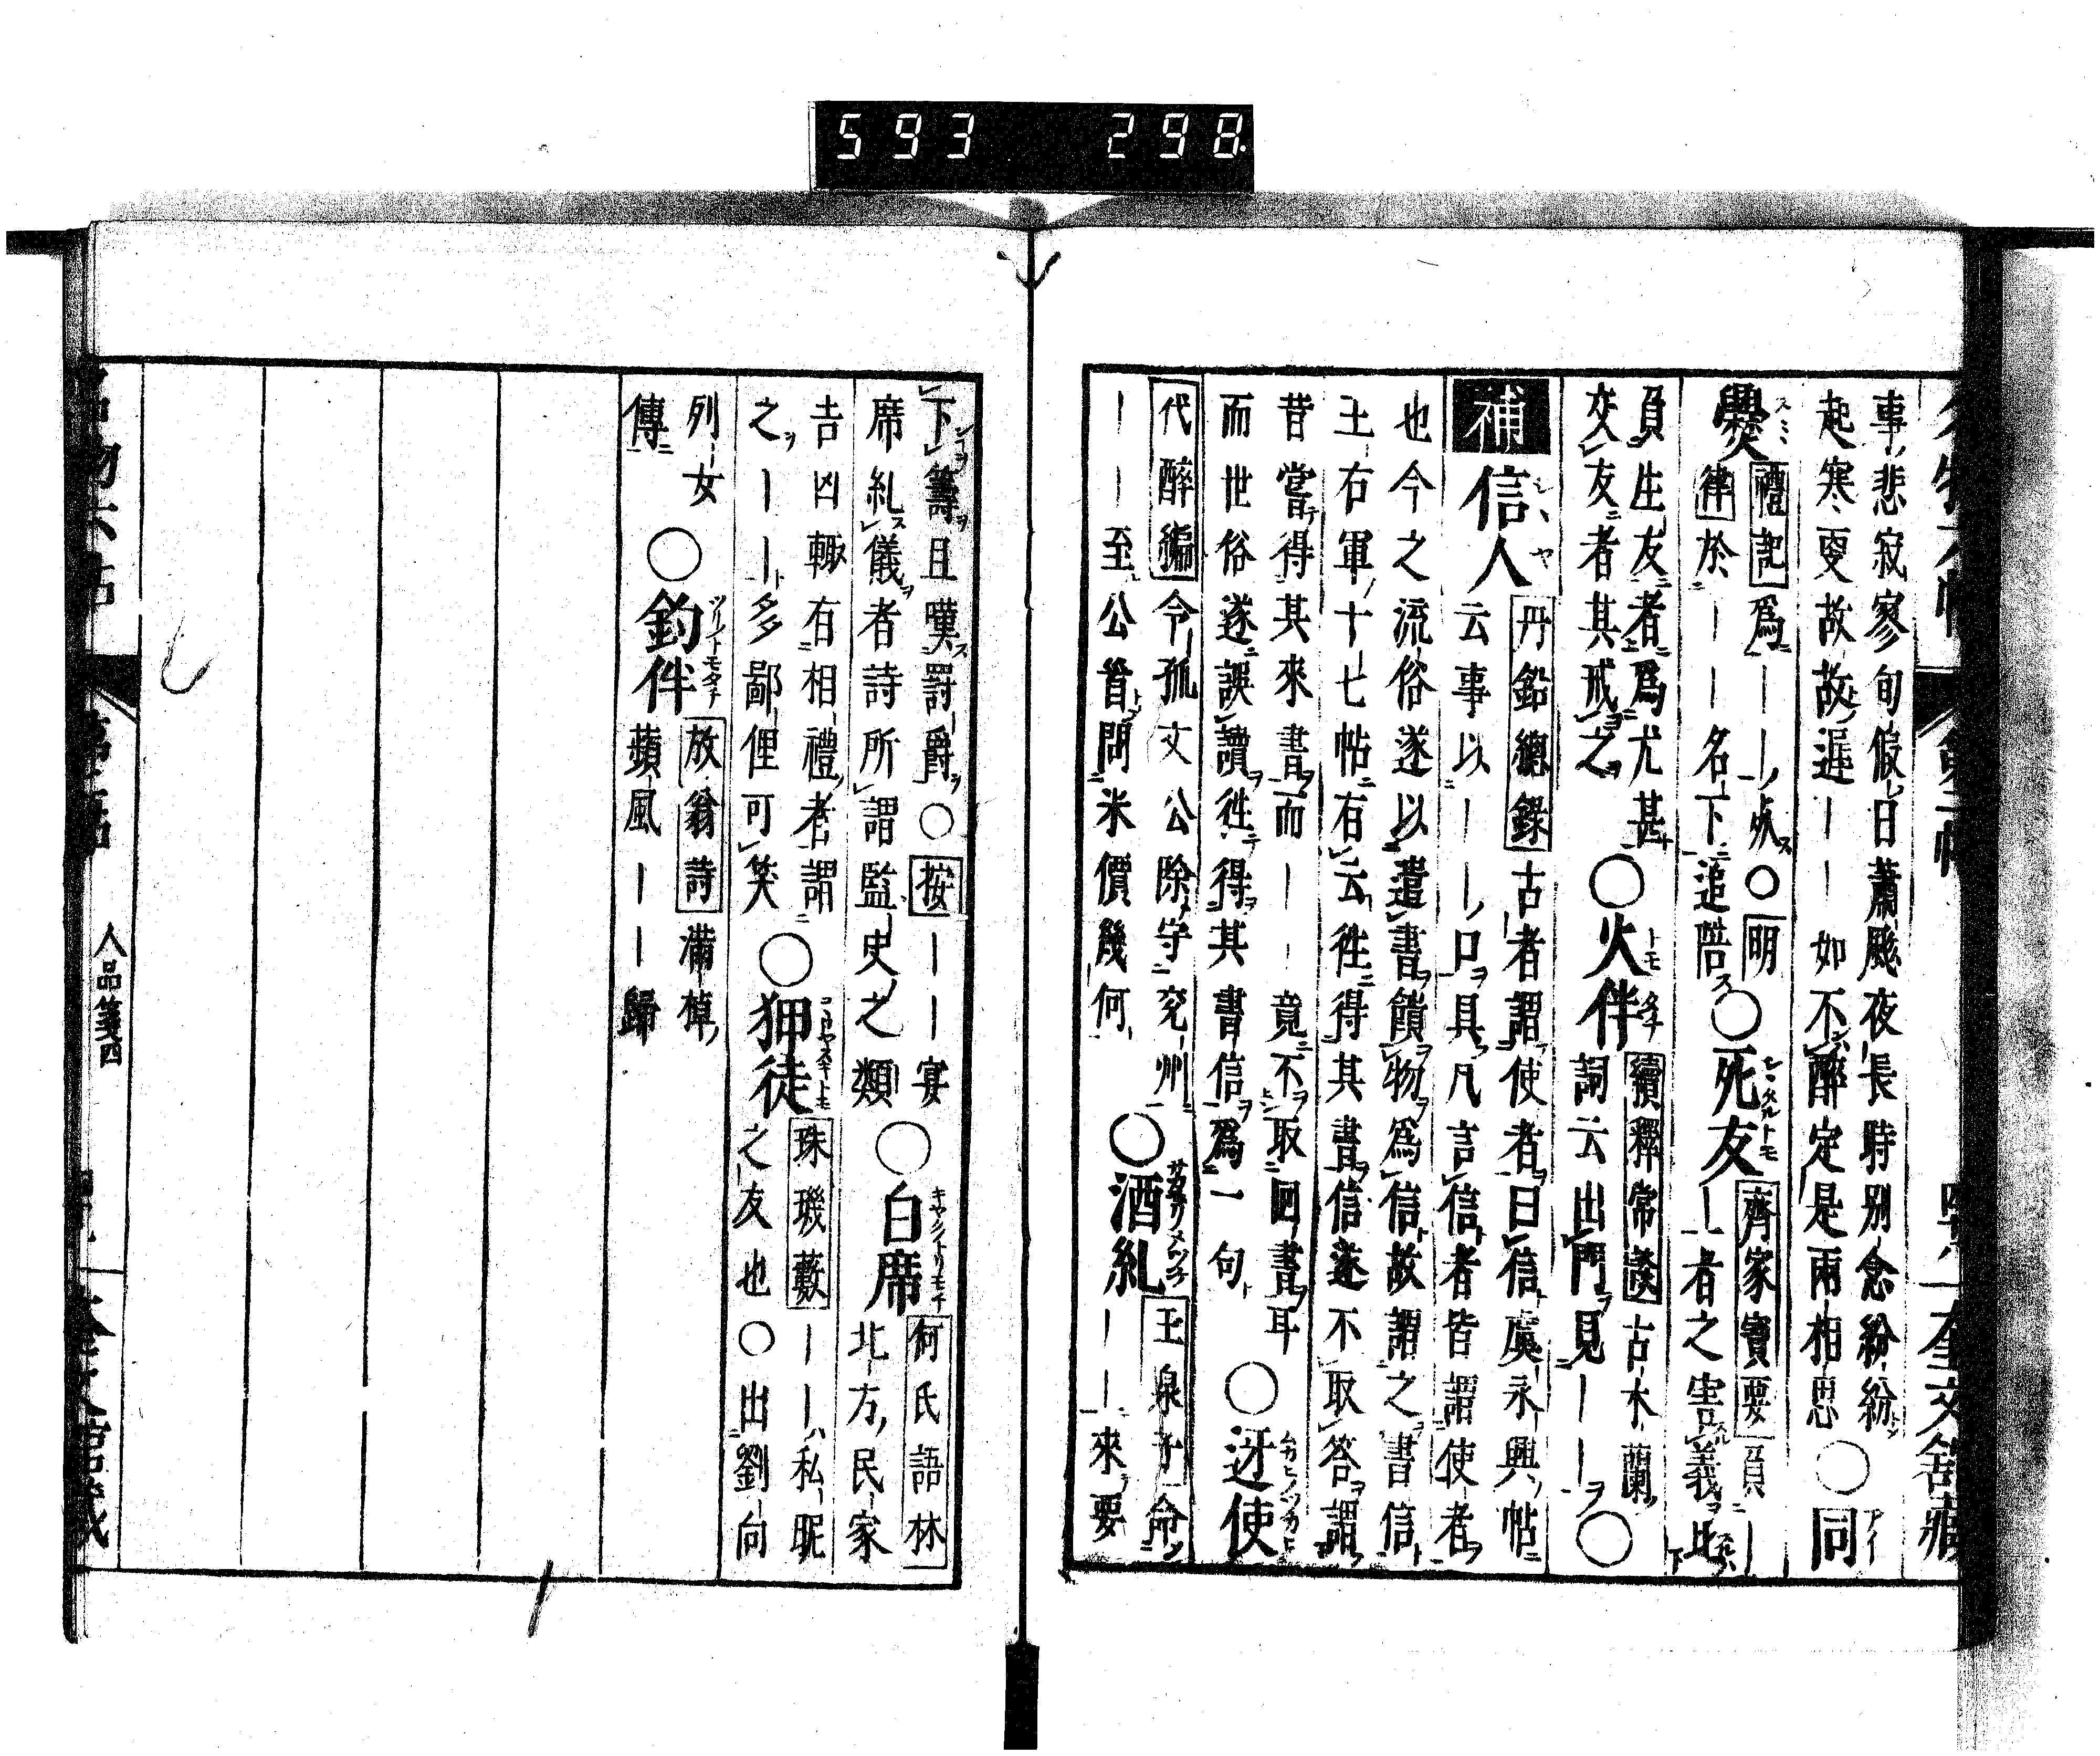 593 298
事悲寂寥旬假日蕭颼夜長時別念紛紛
起寒更故故遲ーー如不醉定是兩相思○同
爨 禮記爲ーーー必○明
律於ーーー名下追陪○死友 齊家寶要負ー
ー者之害義比
負生友者爲尤甚
交友者其戒之○火伴 續釋常談古木蘭
詞云出門見ーー○
補 信人 丹鉛總錄古者謂使者曰信虞永興帖
云事以ーーー口具凡言信者皆謂使者
也今之流俗遂以遣書饋物爲信故謂之書信
王右軍十七帖有云往得其書信遂不取答謂
昔嘗得其來書而ーー竟不取回書耳
而世俗遂誤讀往得其書信爲一句○迓使
代醉編令孤文公除守兗州
ーー至公首問米價幾何○酒糺 玉泉子命
ーーー來要
下籌且嘆罰爵○按ーーー宴
席糺儀者詩所謂監史之類○白席 何氏語林
北方民家
吉凶輙有相禮者謂
之ーーー多鄙俚可笑○狎徒 珠璣藪ーーー私昵
之友也○出劉向
列女
傳○釣伴 放翁詩滿棹
蘋風ーーー歸
人品箋四